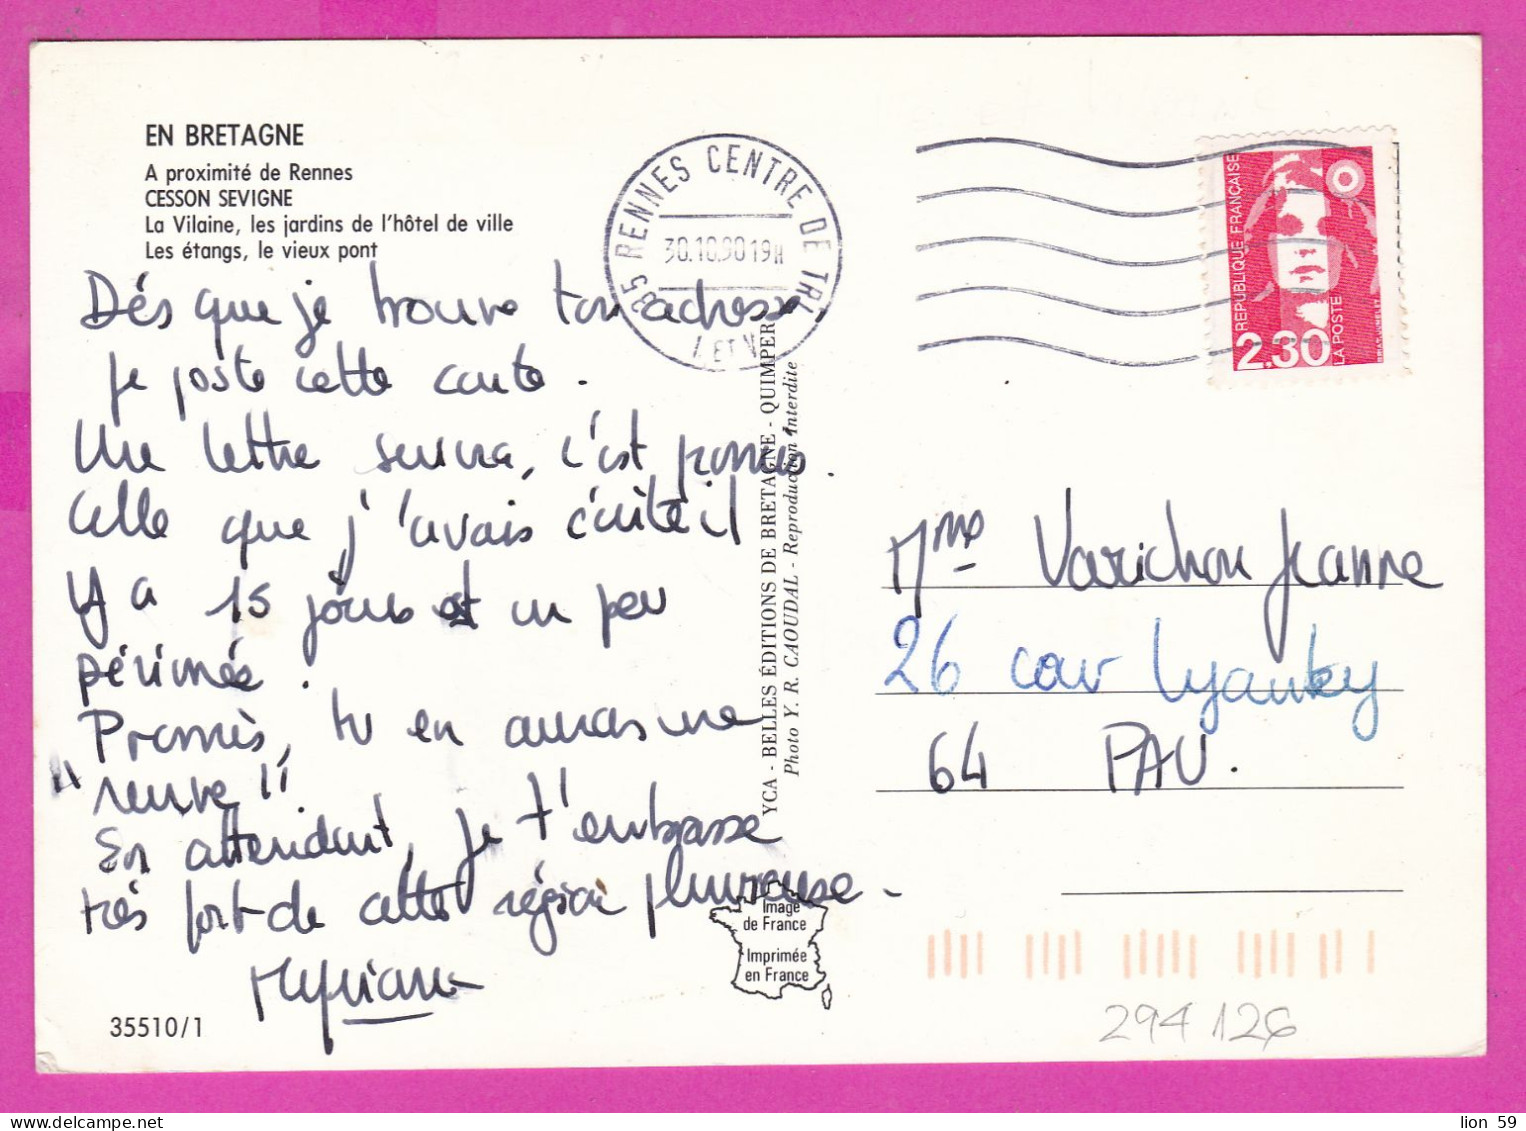 EN BRETAGNE
A proximité de Rennes
CESSON SEVIGNE
La Vilaine, les jardins de l'hôtel de ville
Les étangs, le vieux pont
Dés que je trouve ton adresse,
je poste cette carte.
Une lettre suivra, c'est promis.
Celle que j'avais écrite il
y a 15 jours est un peu
périmée.
Promis, tu en auras une
"neuve".
En attendant, je t'embrasse
très fort de cette région pluvieuse.
Myriam
35510/1
35 RENNES CENTRE DE TRI
30.10.90 19H
I. ET V.
YCA - BELLES ÉDITIONS DE BRETAGNE - QUIMPER
Photo Y. R. CAOUDAL - Reproduction interdite
Image
de France
Imprimée
en France
REPUBLIQUE FRANÇAISE
LA POSTE
2,30
Mme Varichon Jeanne
26 cour Lyautey
64 PAU.
294126
lion 59